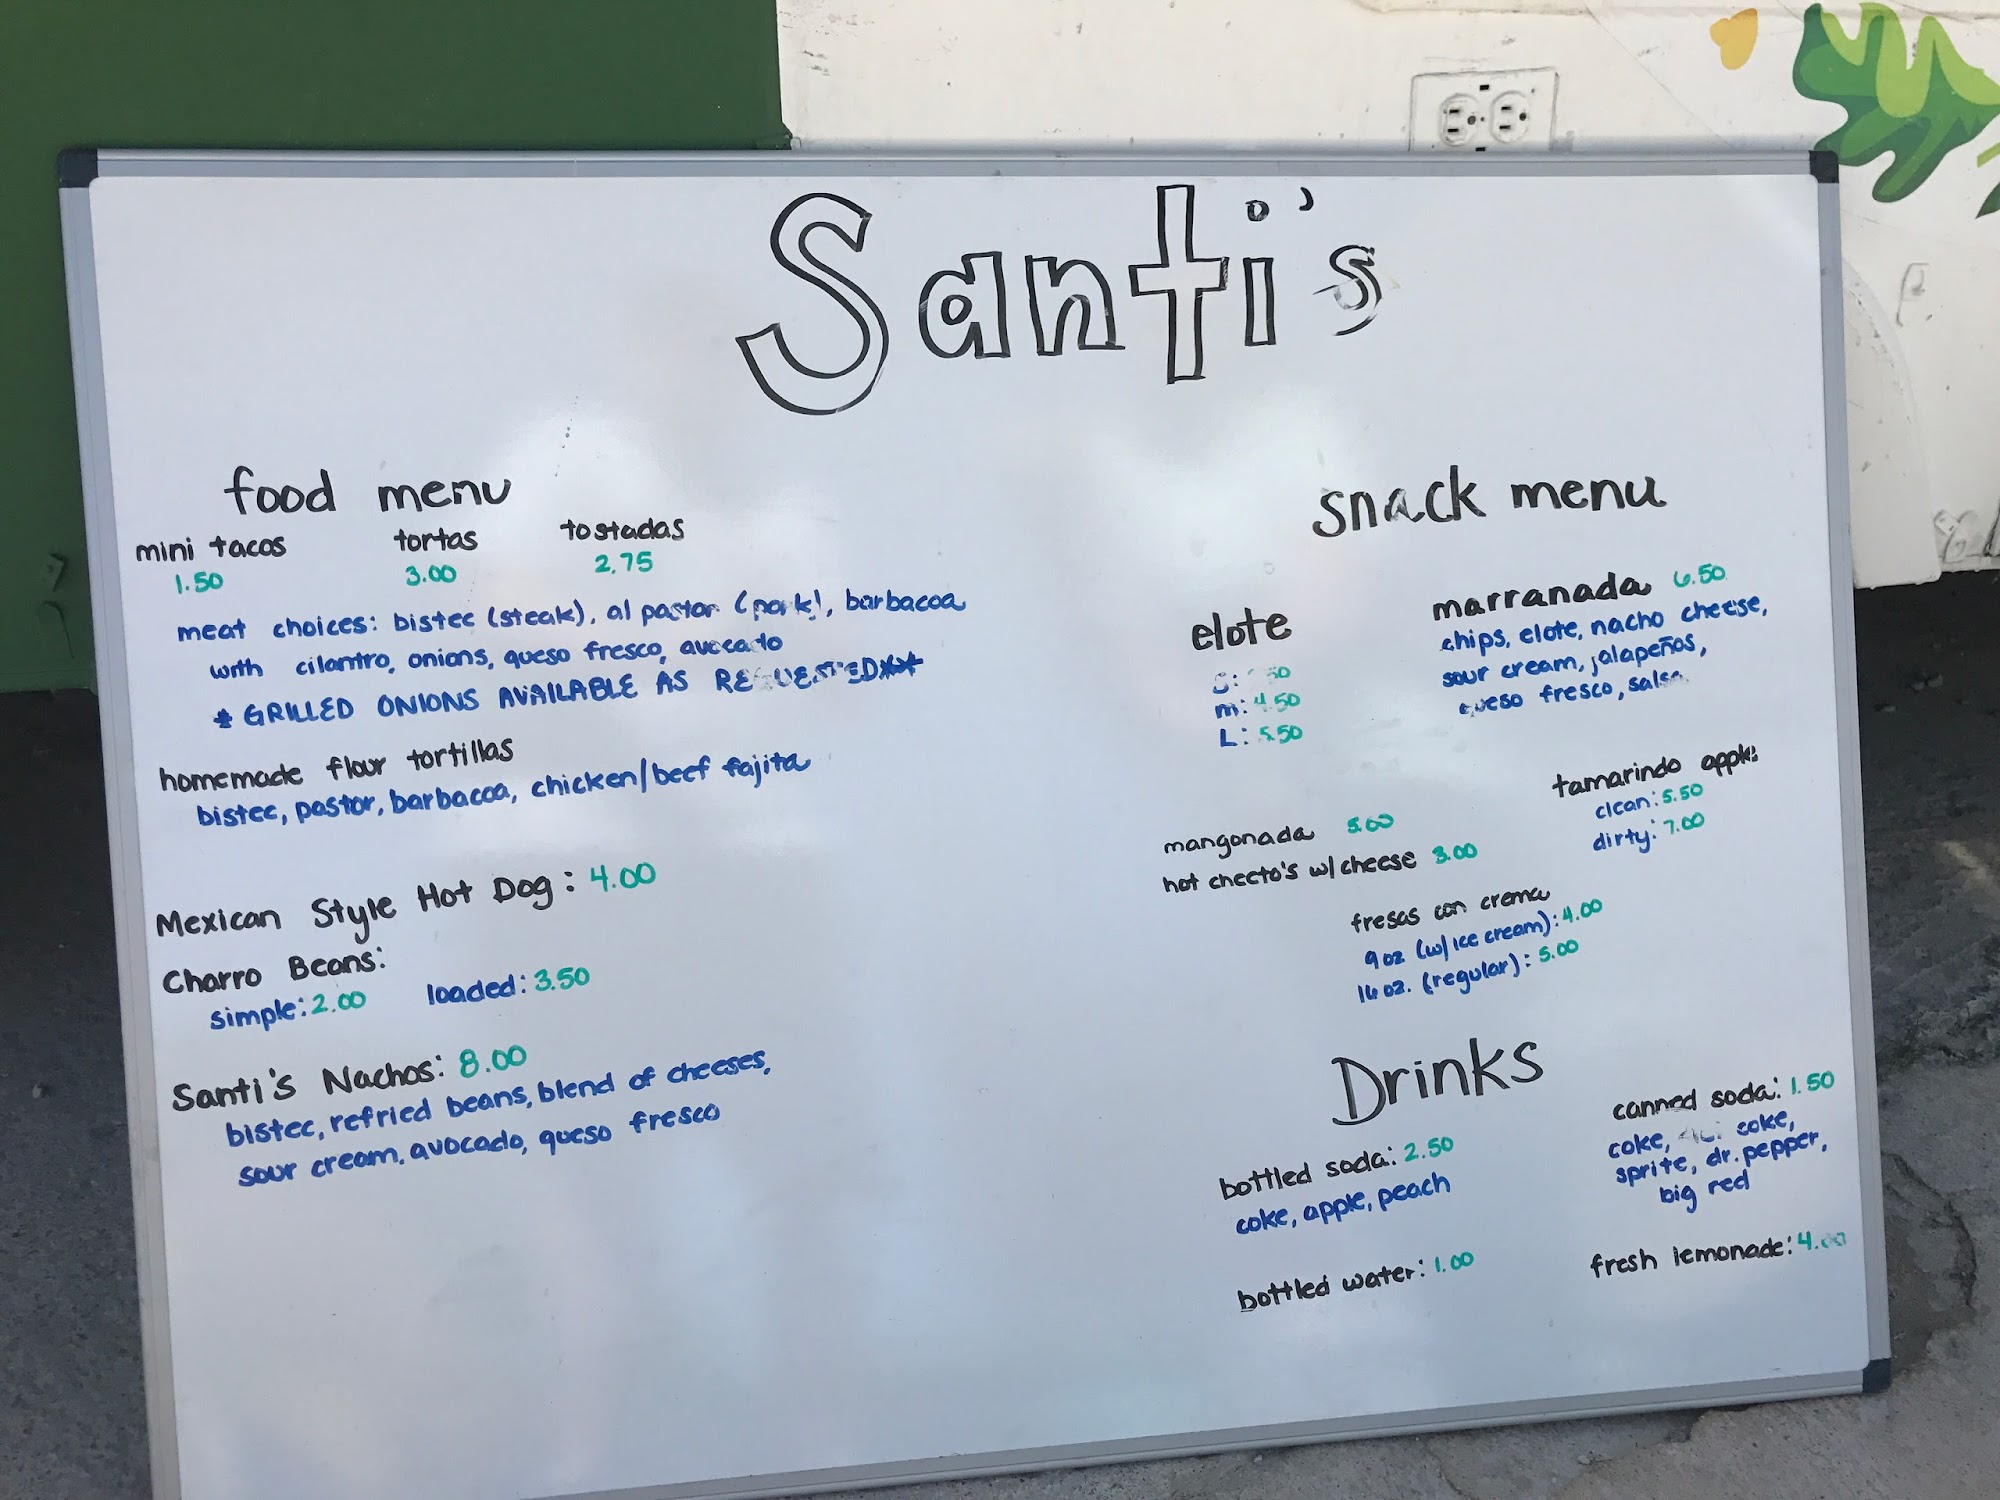 Santi's
food menu
mini tacos tortas tostadas
1.50 3.00 2.75
meat choices: bistec (steak), al pastor (pork), barbacoa
with cilantro, onions, queso fresco, avocado
* GRILLED ONIONS AVAILABLE AS REQUESTED**
homemade flour tortillas
bistec, pastor, barbacoa, chicken/beef fajita
Mexican Style Hot Dog: 4.00
Charro Beans:
simple: 2.00 loaded: 3.50
Santi's Nachos: 8.00
bistec, refried beans, blend of cheeses,
sour cream, avocado, queso fresco
snack menu
elote
S: .50
m: 4.50
L: 5.50
marranada 6.50
chips, elote, nacho cheese,
sour cream, jalapeños,
queso fresco, salsa
tamarindo apple:
clean: 5.50
dirty: 7.00
mangonada 5.00
hot cheeto's w/ cheese 3.00
fresas con crema
9 oz (w/ ice cream): 4.00
16 oz. (regular): 5.00
Drinks
bottled soda: 2.50
coke, apple, peach
canned soda: 1.50
coke, coke,
sprite, dr. pepper,
big red
bottled water: 1.00
fresh lemonade: 4.00